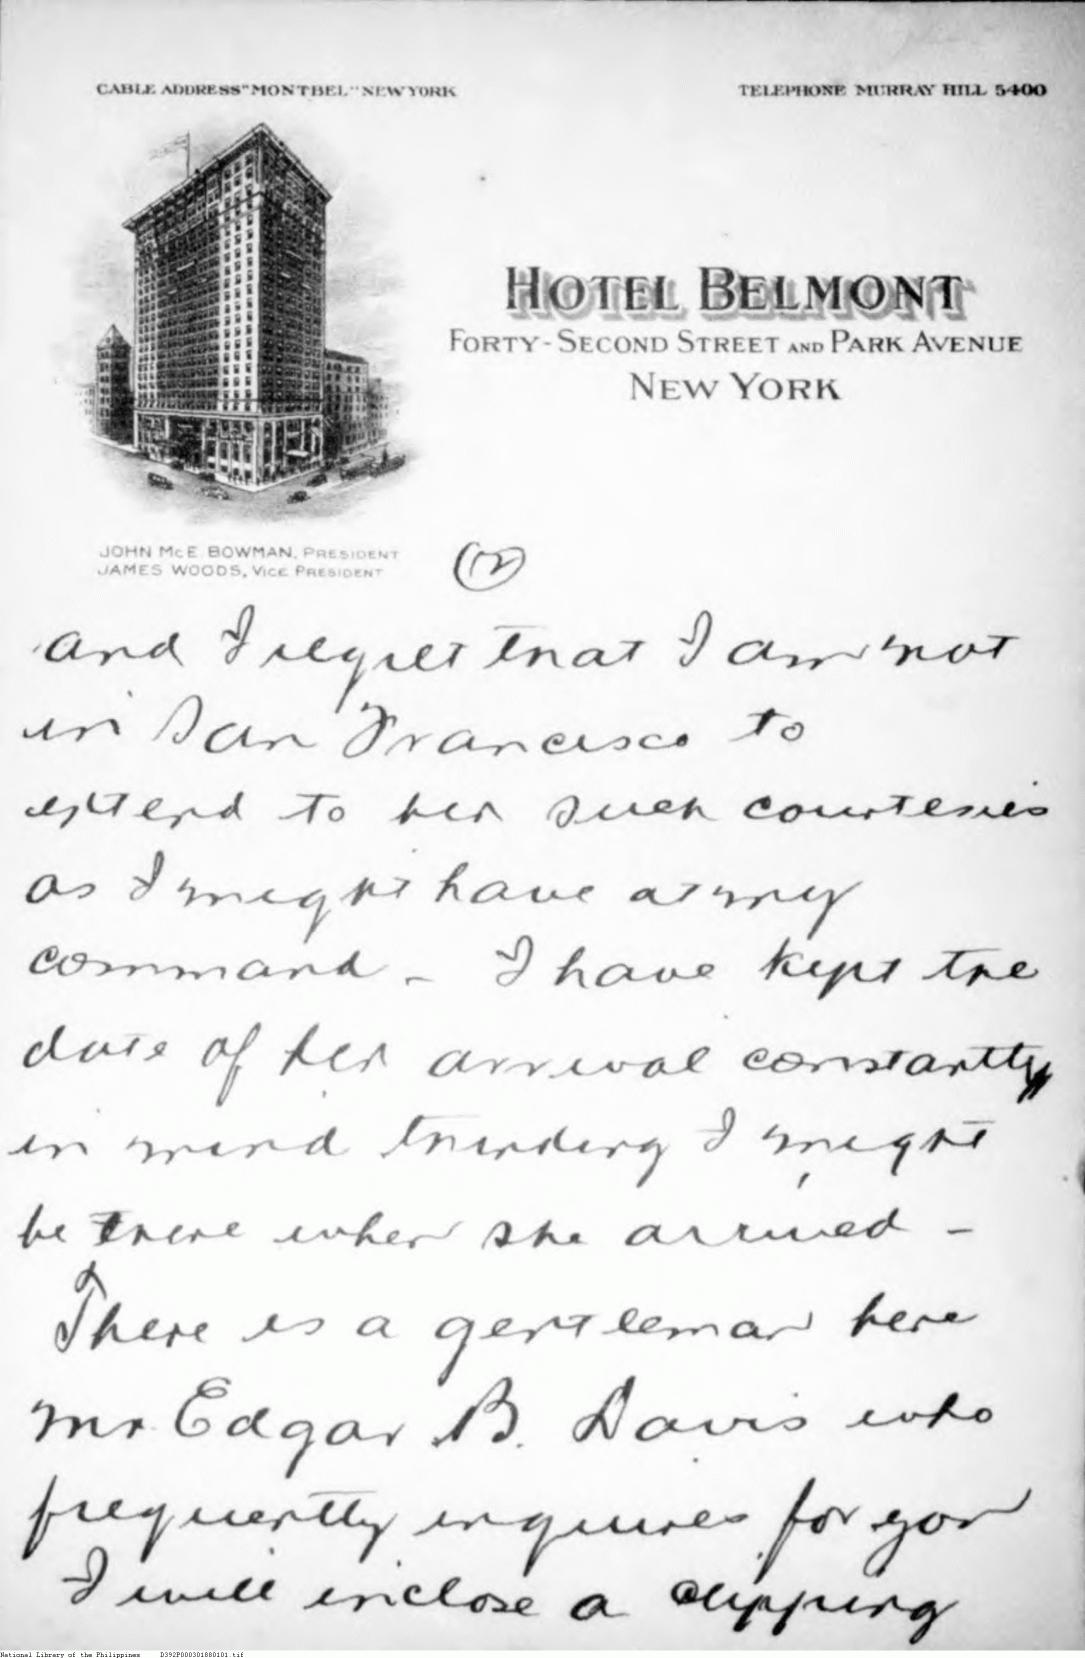 CABLE ADDRESS "MONTBEL" NEW YORK
TELEPHONE MURRAY HILL 5400
HOTEL BELMONT
FORTY-SECOND STREET AND PARK AVENUE
NEW YORK
JOHN McE. BOWMAN, PRESIDENT
JAMES WOODS, VICE PRESIDENT
(12)
and I regret that I am not
in San Francisco to
extend to her such courtesies
as I might have at my
command - I have kept the
date of her arrival constantly
in mind thinking I might
be there when she arrived -
There is a gentleman here
Mr Edgar B. Davis who
frequently inquires for you
I will inclose a clipping
National Library of the Philippines D392P000301880101.tif